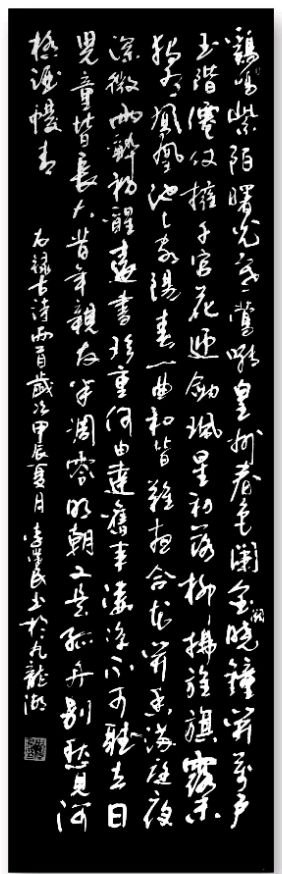 鷄鳴紫陌曙光寒鶯囀皇州春色闌金闕曉鐘開萬戶
玉階僊仗擁千官花迎劍珮星初落柳拂旌旗露未
獨有鳳凰池上客陽春一曲和皆難夜合花開香滿庭夜
深微雨醉初醒遠書珍重何由達舊事淒涼不可聽去日
兒童皆長大昔年親友半凋零明朝又是孤舟別愁見河
橋酒幔青
右錄古詩兩首歲次甲辰夏月李學民書於九龍湖